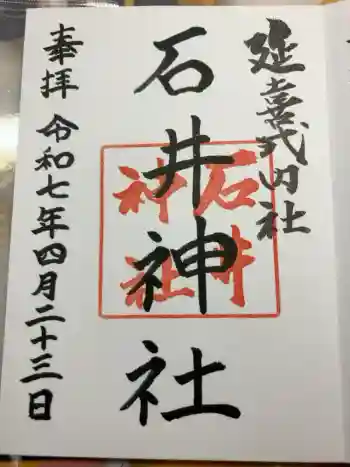 延喜式内社
石井神社
石井
神社
奉拝 令和七年四月二十三日